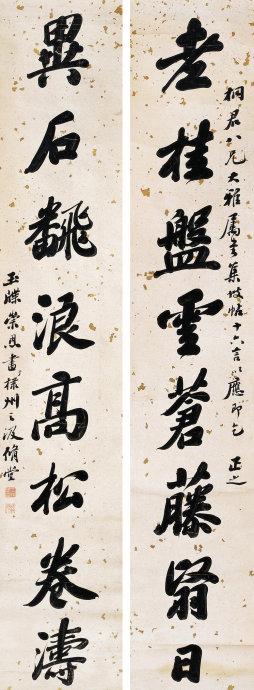 桐君八兄大雅屬書集坡帖十六言以應即乞 正之
老桂盤雲蒼藤翳日
異石飜浪高松卷濤
玉牒榮恩書